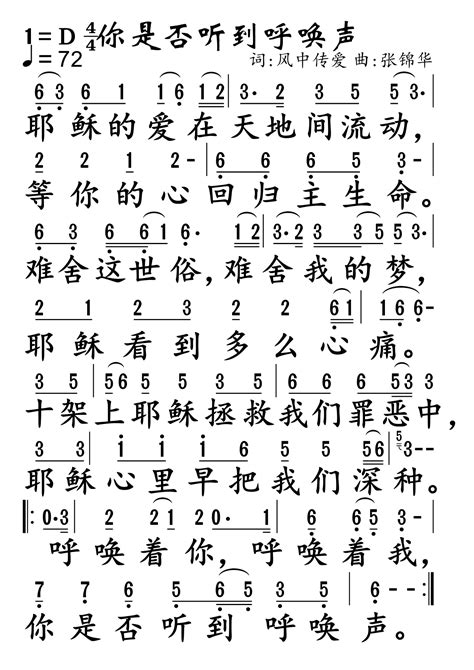 1=D 4/4 你是否听到呼唤声
♩=72 词:风中传爱 曲:张锦华
6 3 6 1 1 6 1 2 | 3· 2 3 3 5 5 3·
耶稣的爱在天地间流动，
2 2 1 2 - | 6 6 6 5 3 -
等你的心回归主生命。
6 3 6 6 1 6· 1 2 | 3· 2 3 3 5 5 3·
难舍这世俗，难舍我的梦，
2 1 2 3 2 2 6 1 | 1 6 6·
耶稣看到多么心痛。
3 5 | 5 6 5 3 5 3 3 5 | 6 6 6 5 3 3
十架上耶稣拯救我们罪恶中，
3 3 | 1 1 1 6 5 5 5 6 | 5 3 - -
耶稣心里早把我们深种。
‖: 0·3 | 2 2 1 2 0· 1 | 6 6 5 3 -
呼唤着你，呼唤着我，
7 7 6 5 6 5 3 5 | 6 - - :‖
你是否听到呼唤声。